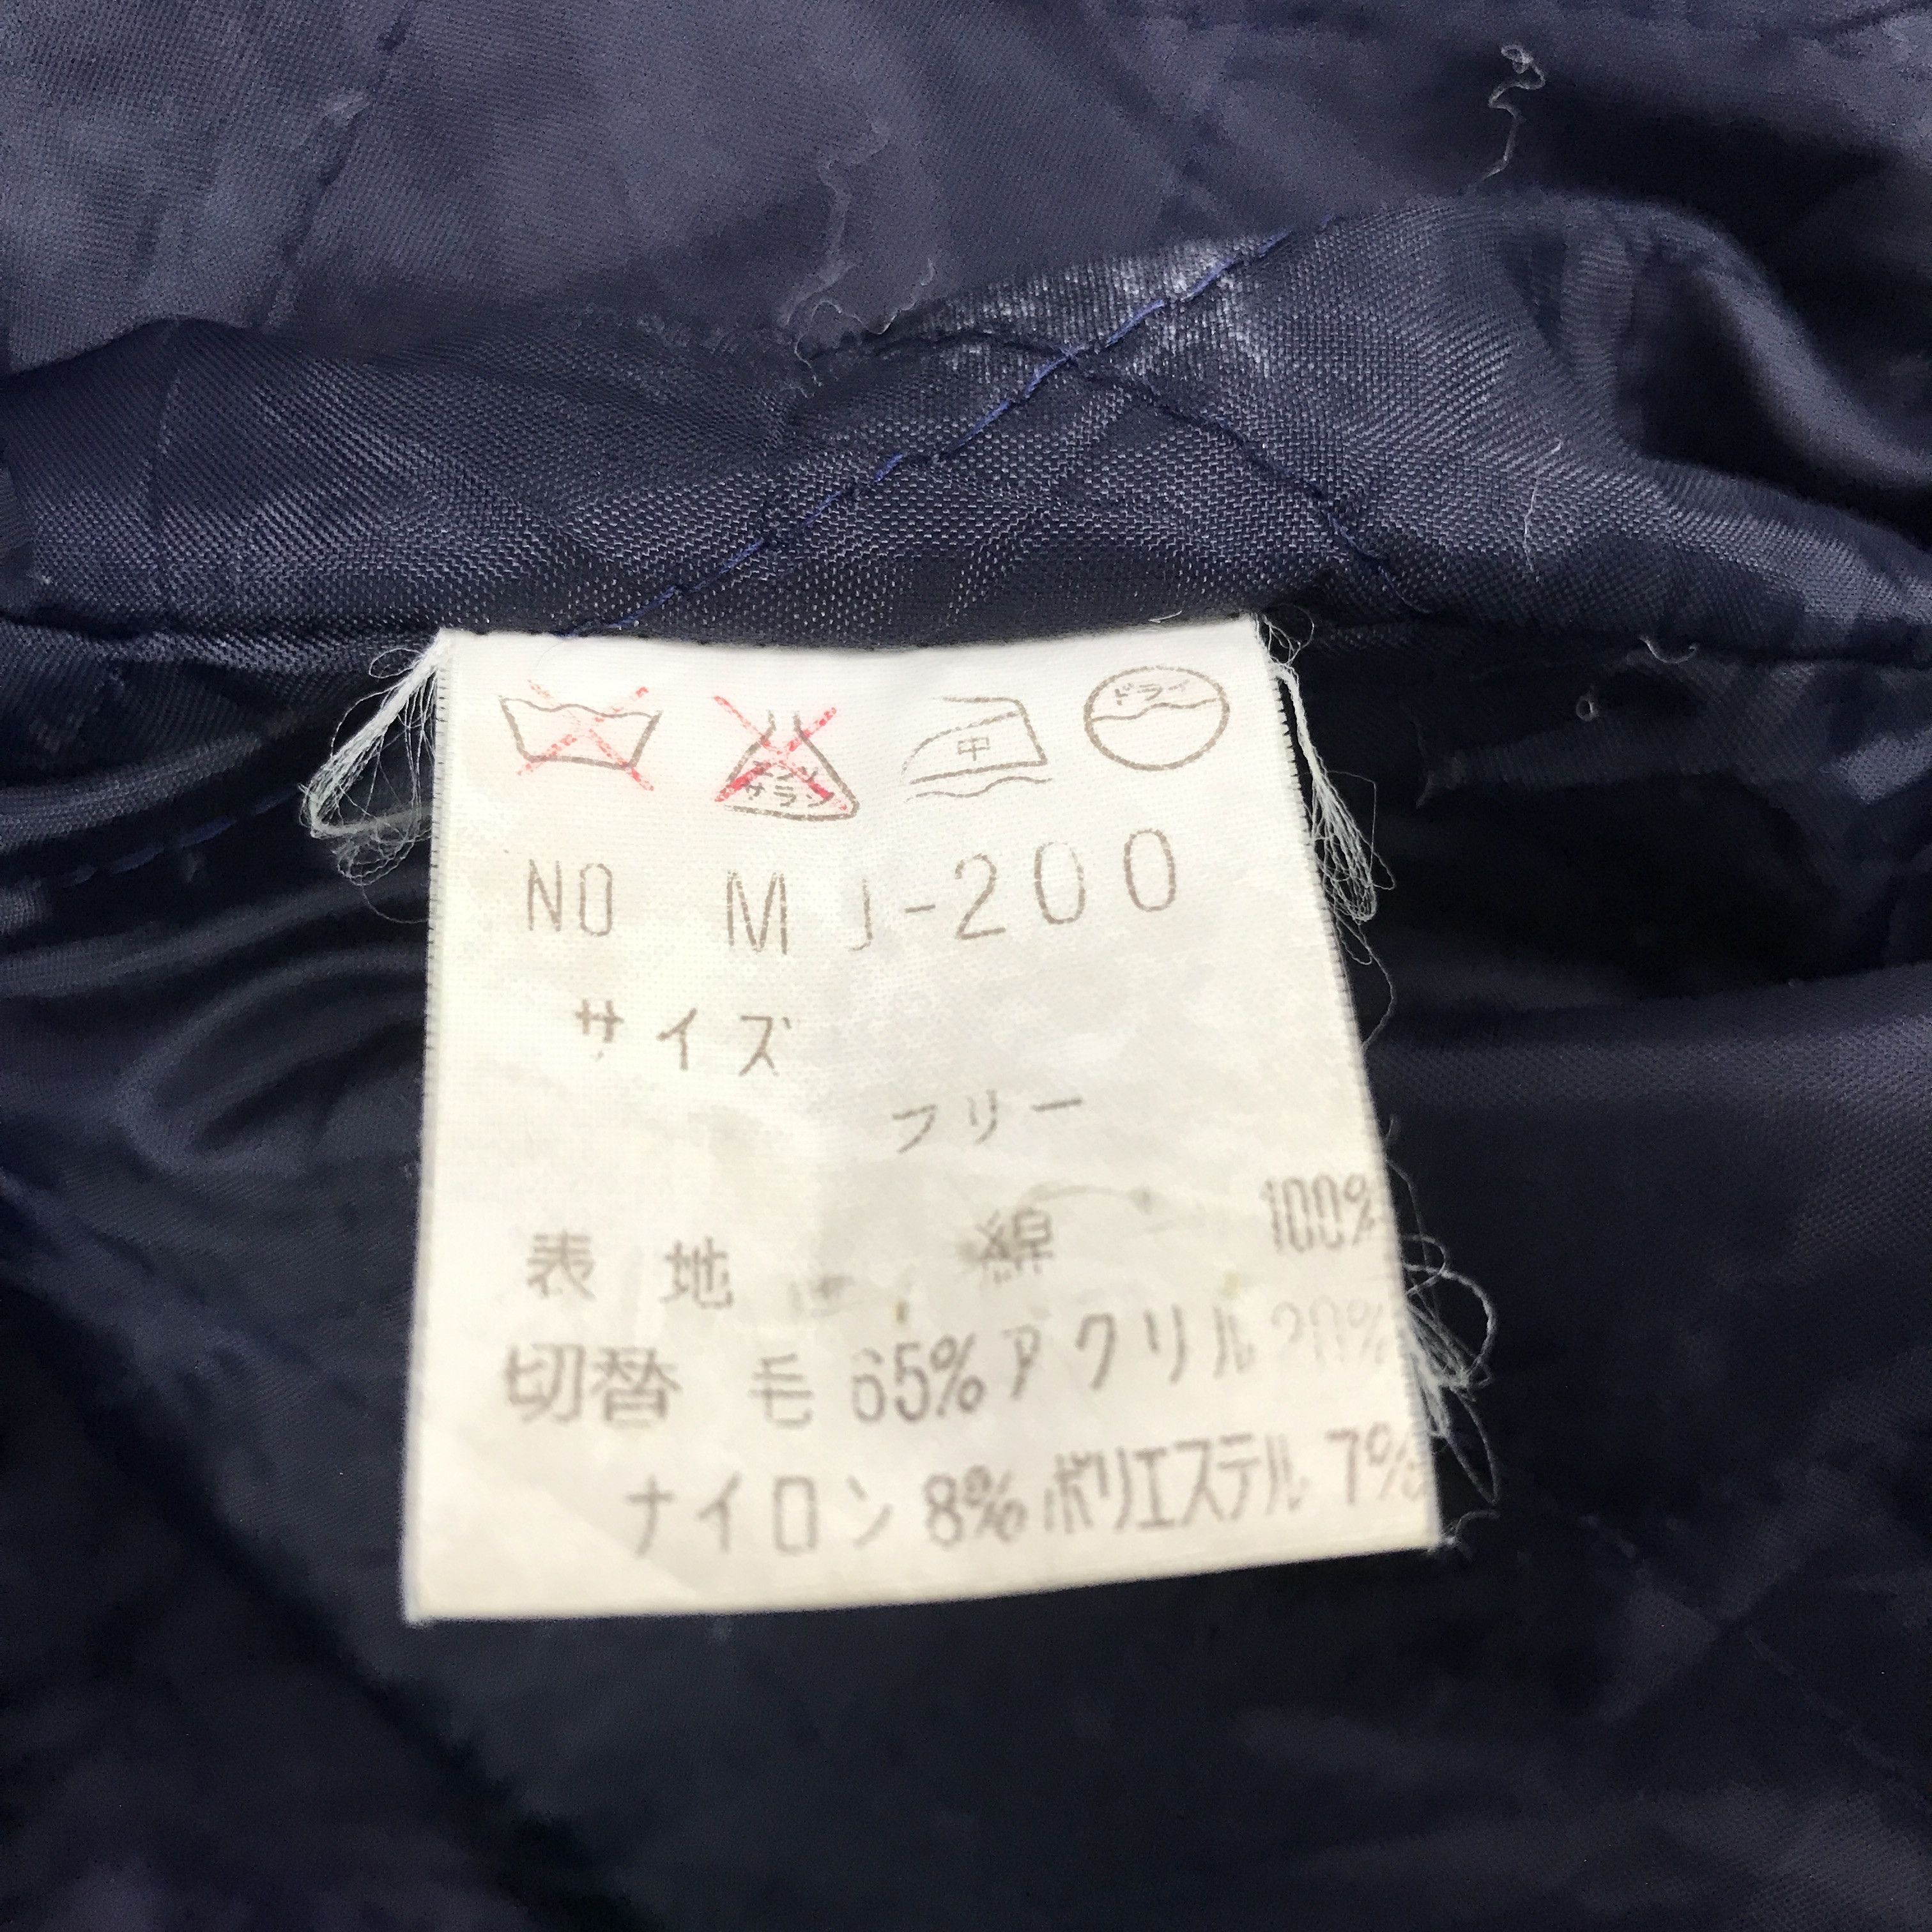 ドライ
エンソ
サラシ
中
NO MJ-200
サイズ
フリー
表地 綿 100%
切替 毛 65% アクリル 20%
ナイロン 8% ポリエステル 7%